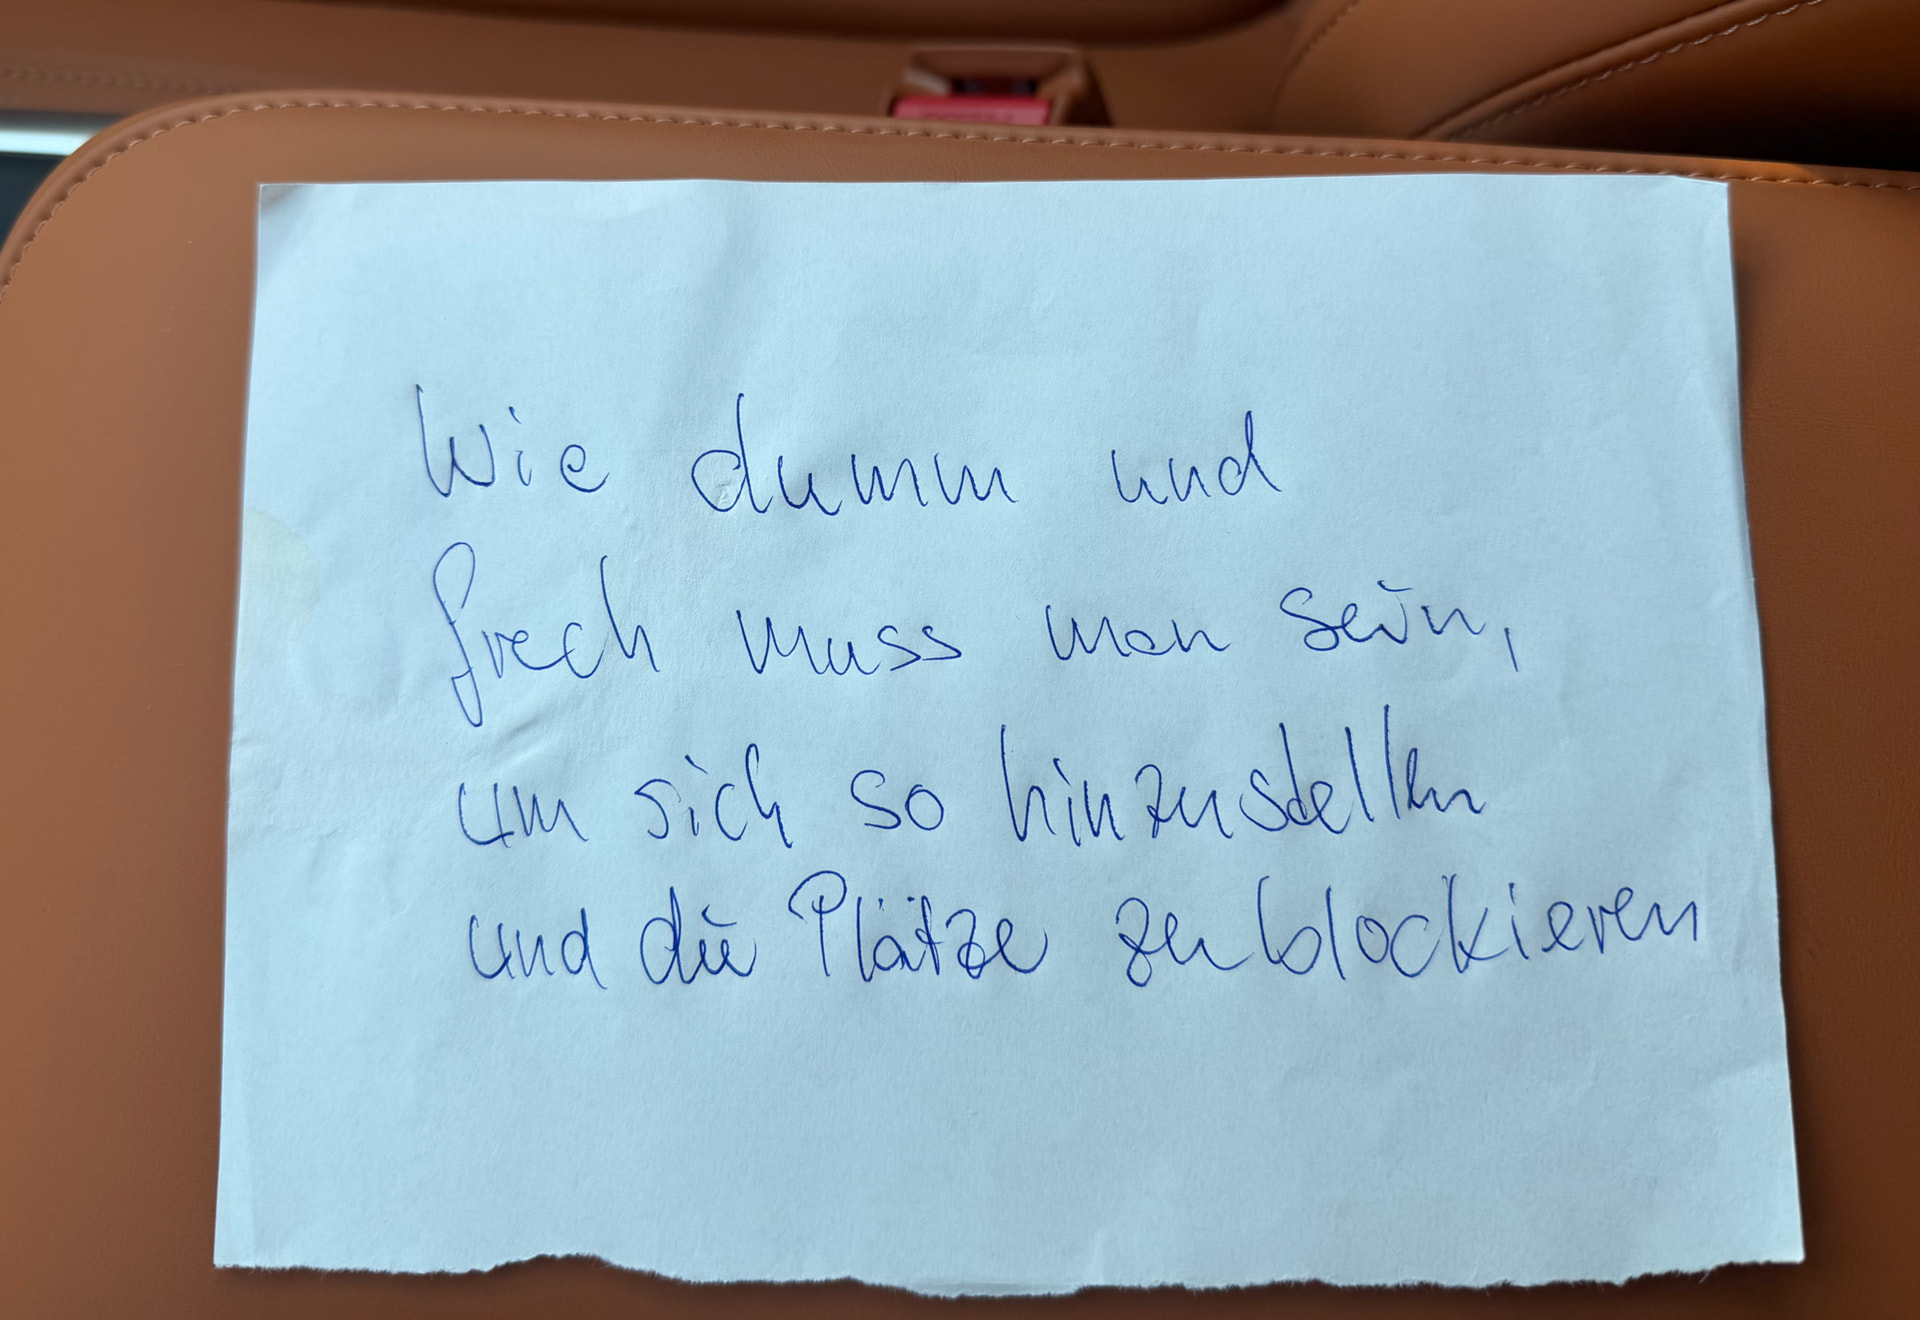 Wie dumm und
frech muss man sein,
um sich so hinzustellen
und die Plätze zu blockieren